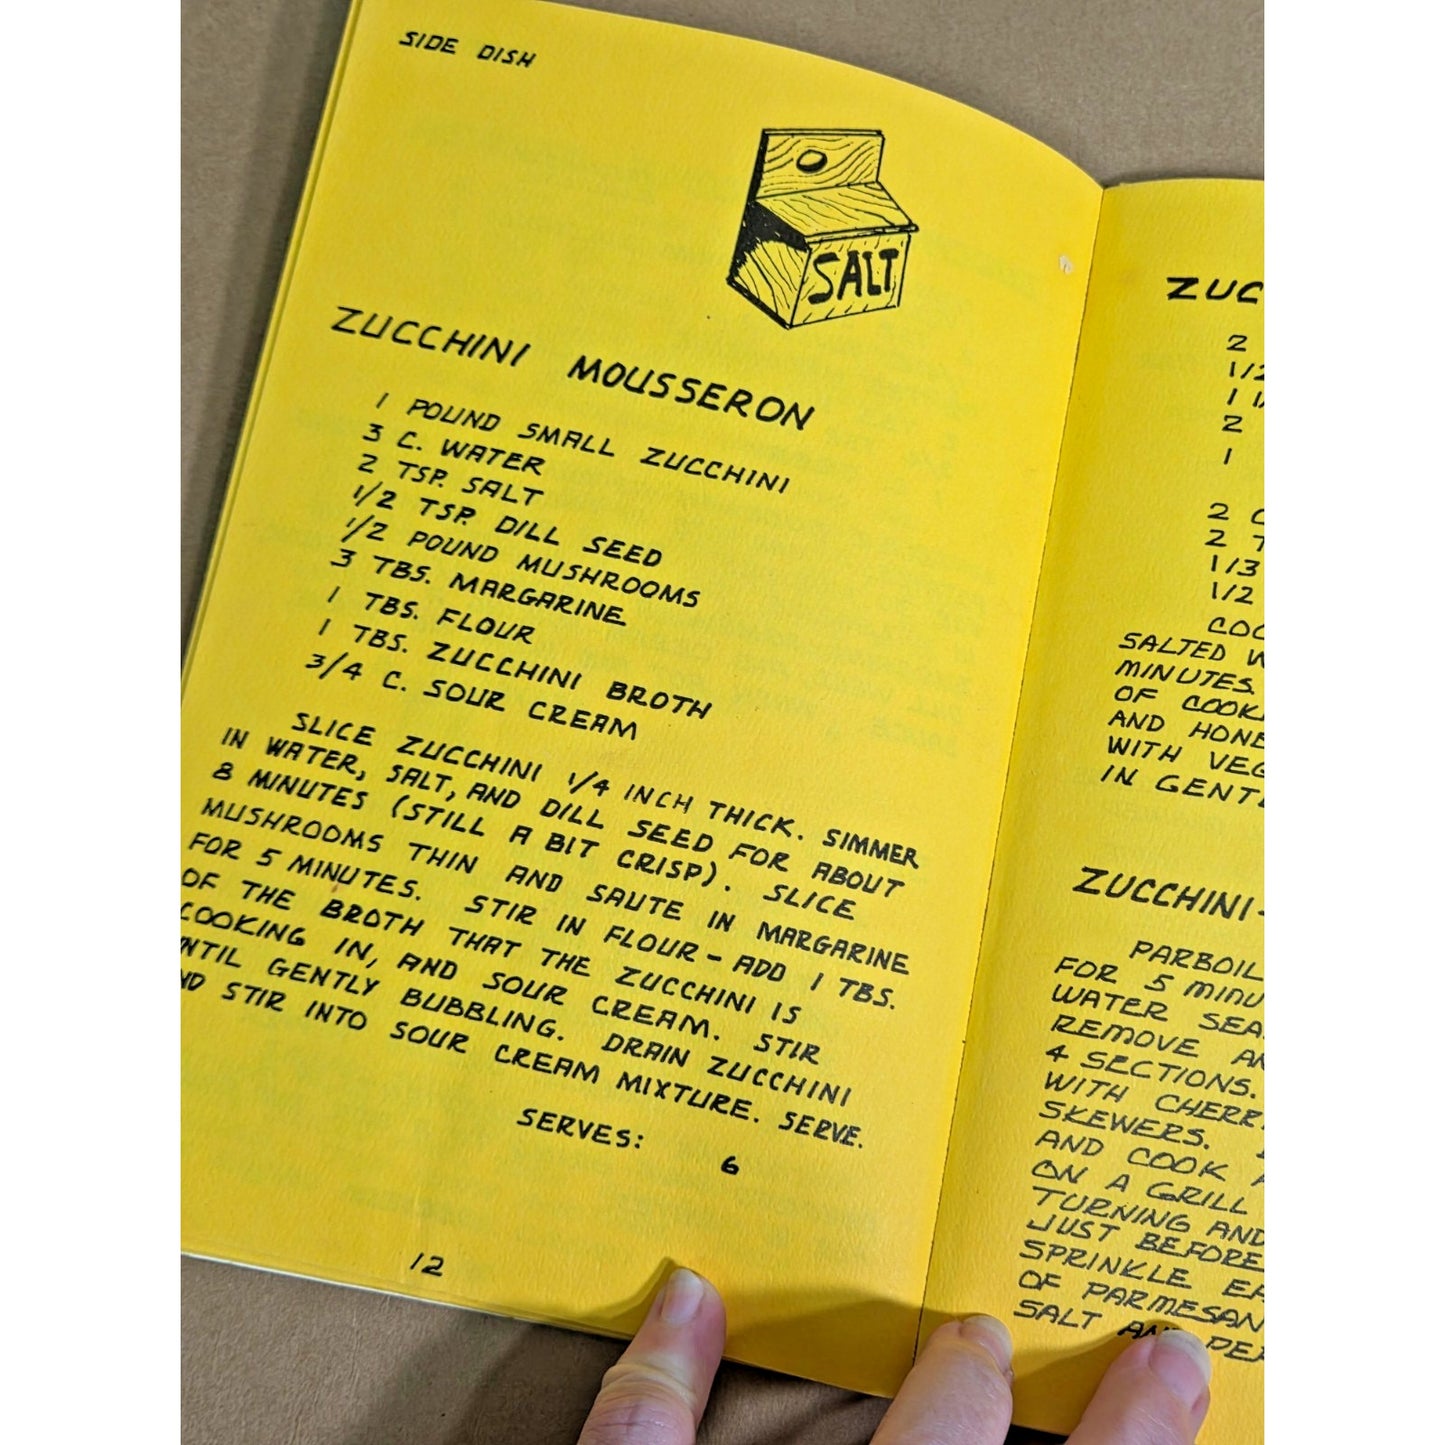 SIDE DISH
SALT
ZUCCHINI MOUSSERON
1 POUND SMALL ZUCCHINI
3 C. WATER
2 TSP. SALT
1/2 TSP. DILL SEED
1/2 POUND MUSHROOMS
3 TBS. MARGARINE
1 TBS. FLOUR
1 TBS. ZUCCHINI BROTH
3/4 C. SOUR CREAM
SLICE ZUCCHINI 1/4 INCH THICK. SIMMER
IN WATER, SALT, AND DILL SEED FOR ABOUT
8 MINUTES (STILL A BIT CRISP). SLICE
MUSHROOMS THIN AND SAUTE IN MARGARINE
FOR 5 MINUTES. STIR IN FLOUR - ADD 1 TBS.
OF THE BROTH THAT THE ZUCCHINI IS
COOKING IN, AND SOUR CREAM. STIR
NTIL GENTLY BUBBLING. DRAIN ZUCCHINI
ND STIR INTO SOUR CREAM MIXTURE. SERVE.
SERVES: 6
12
ZUC
2
1/2
1 1/
2
1
2 C
2 T
1/3
1/2
COO
SALTED W
MINUTES.
OF COOK
AND HONE
WITH VEG
IN GENTL
ZUCCHINI-
PARBOIL
FOR 5 MINU
WATER SEA
REMOVE AN
4 SECTIONS.
WITH CHERR
SKEWERS.
AND COOK A
ON A GRILL
TURNING AND
JUST BEFORE
SPRINKLE EA
OF PARMESAN
SALT AND PEP